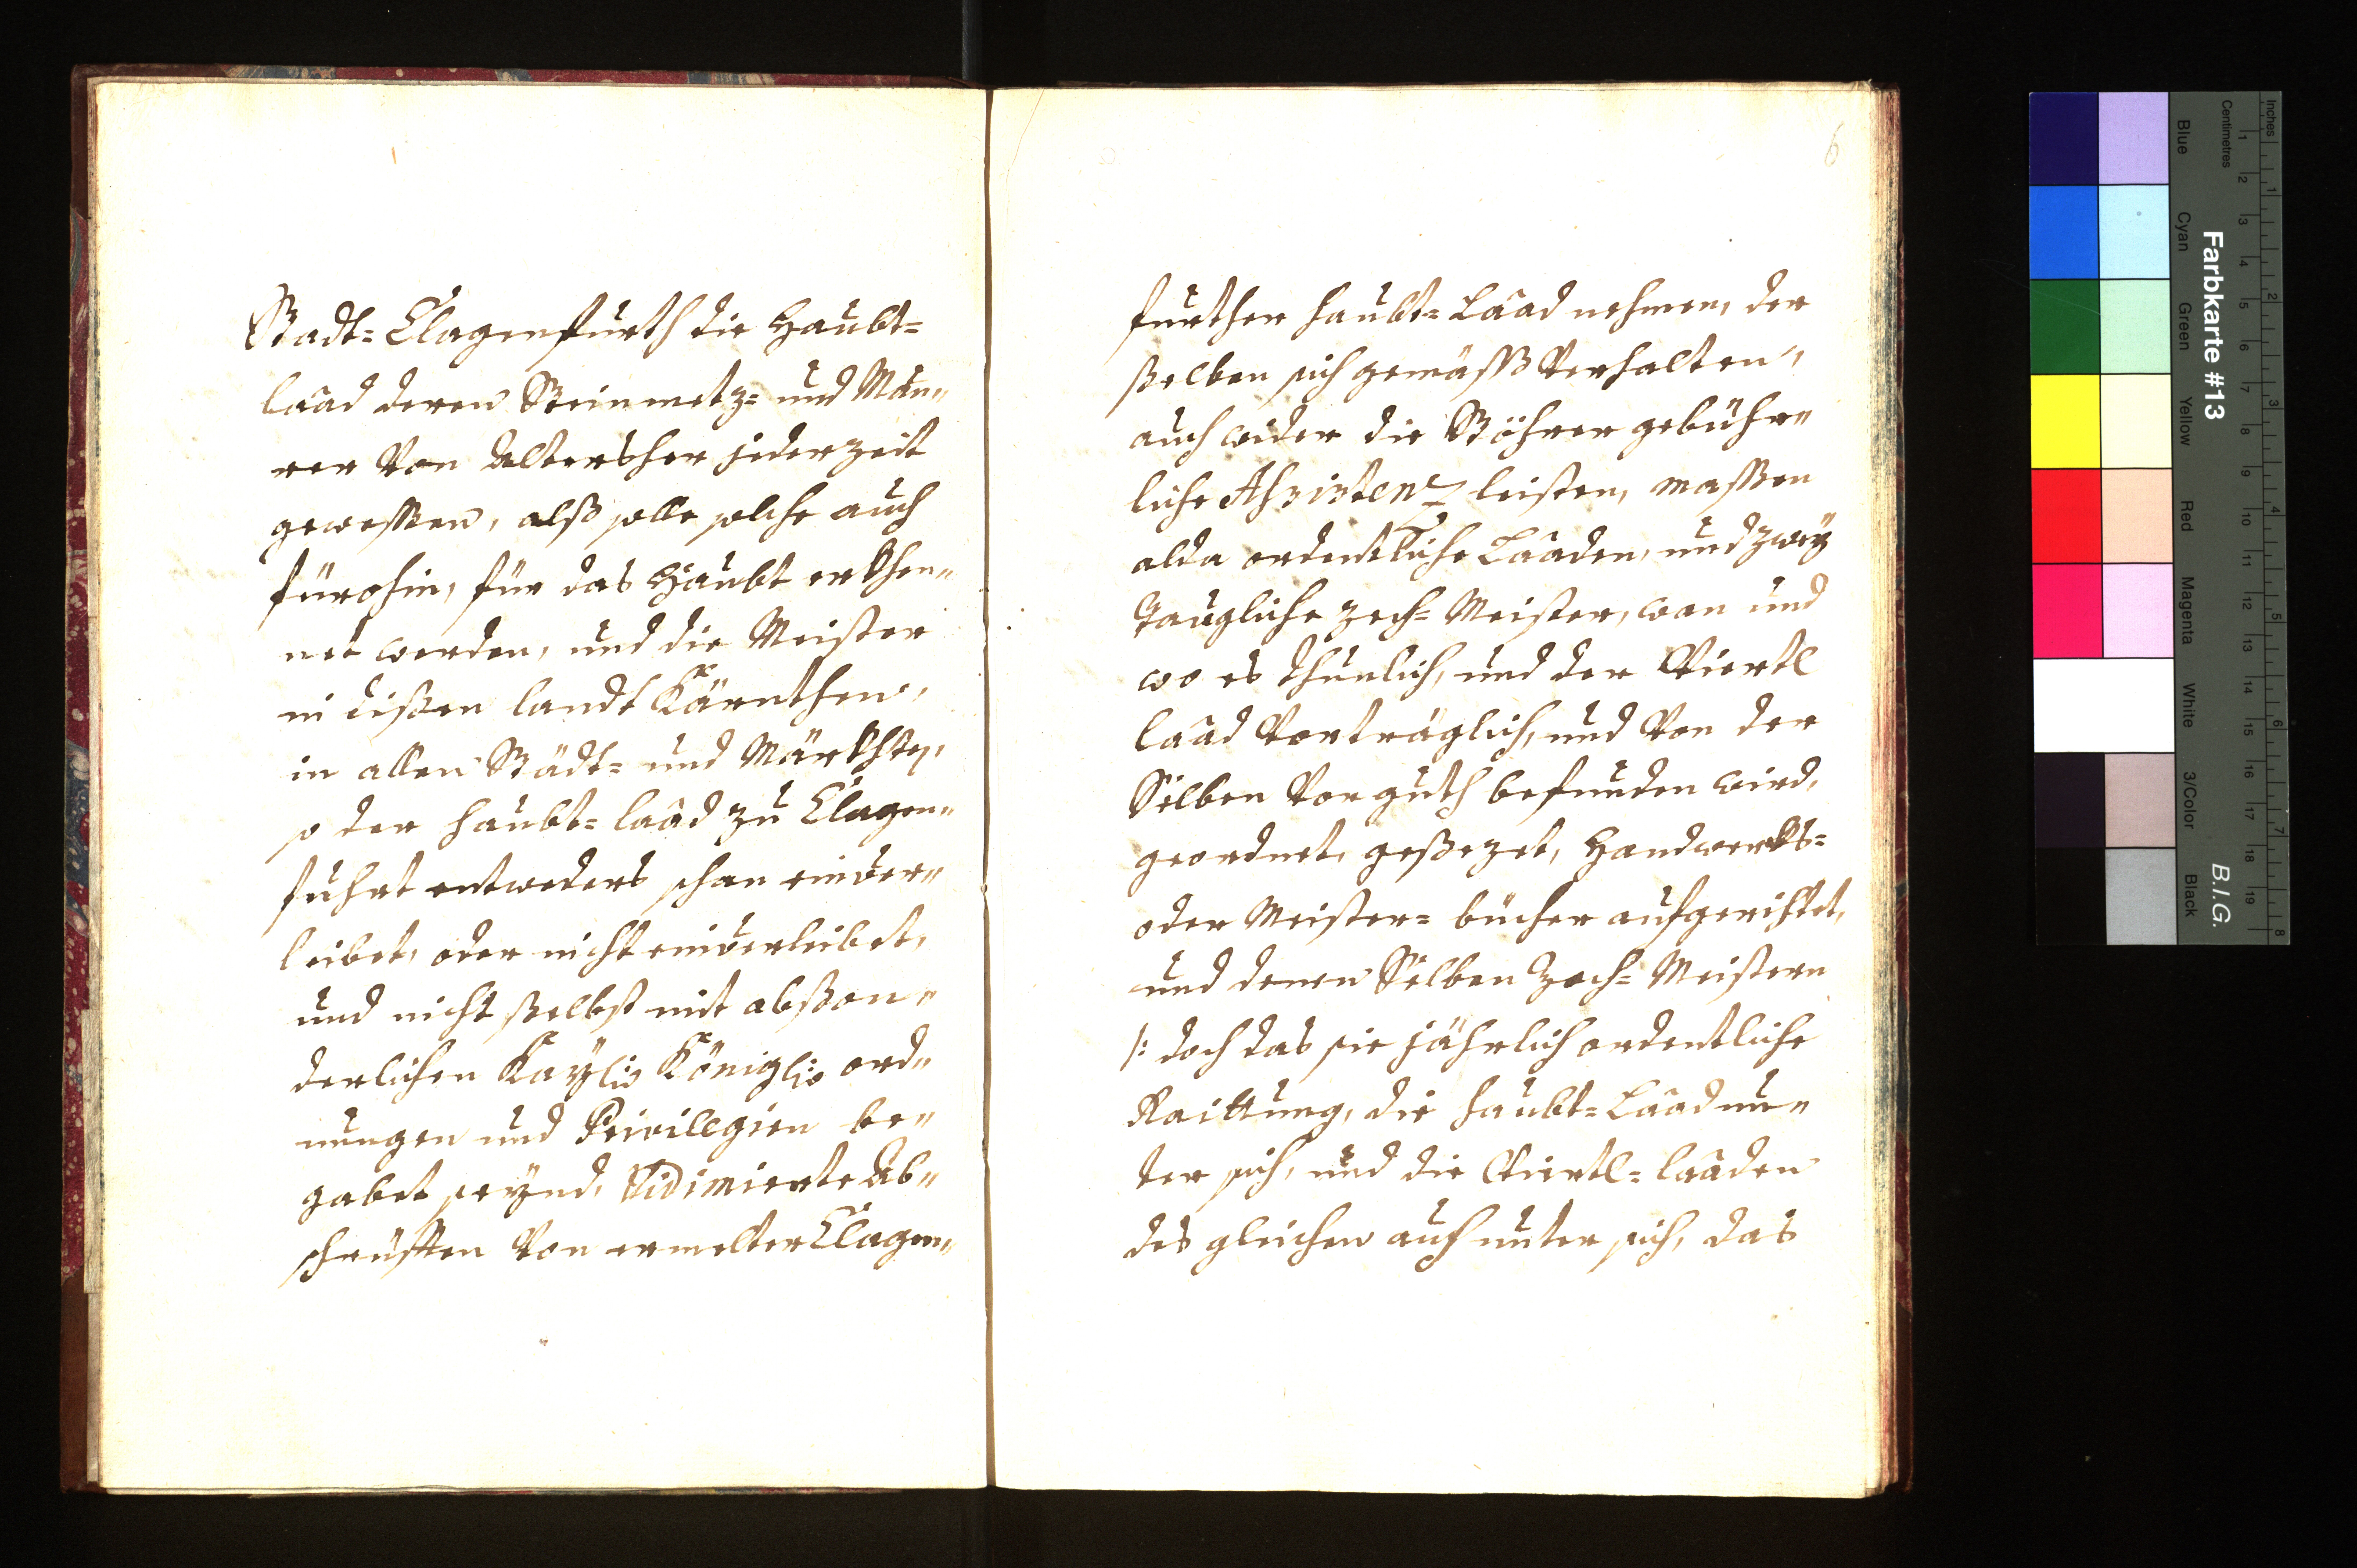 Stadt= Clagenfurth die Haubt=
laad deren Steinmetz= und Mau„
rer von Altershero jederzeit
gewessen, alß solle solche auch
fürohin, für das Haubt erkhen„
net werden, und die Meister
in dißen landt Kärnthen,
in allen Städt= und Märkhten,
so der haubt= laad zu Clagen„
fuhrt entweders schon einver„
leibet, oder nicht einverleibet,
und nicht ßelbst mit abßon„
derlichen Kayl: Königl: ord„
nungen und Privilegien be„
gabet seynd, Vidimierte Ab„
schrüfften von ermelter Clagen„
6
further haubt= Laad nehmen, der
ßelben sich gemäß Verhalten,
auch wider die Stöhrer gebühr„
liche Assistenz leisten, massen
alda ordentliche Laaden, und zwey
Taugliche zech= Meister, wan und
wo es thunlich, und der Viertl
laad Vorträglich, und Von der
Selben Vor guth befunden wird,
geordnet, geßezet, Handwerkhs=
oder Meister= bücher aufgerichtet,
und denen Selben Zech= Meistern
/: doch das sie jährlich ordentliche
Raittung, die haubt= Laad un„
ter sich, und die Viertl= laaden
des gleichen auch unter sich, das
Farbkarte #13
B.I.G.
Inches
Centimetres
1 2 3 4 5 6 7 8 9 10 11 12 13 14 15 16 17 18 19
1 2 3 4 5 6 7 8
Blue Cyan Green Yellow Red Magenta White 3/Color Black